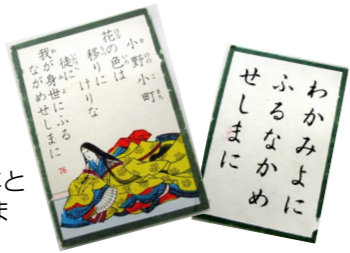 小野小町
花の色は
移りにけりな
徒に
我が身世にふる
ながめせしまに
わかみよに
ふるなかめ
せしまに
と
ま